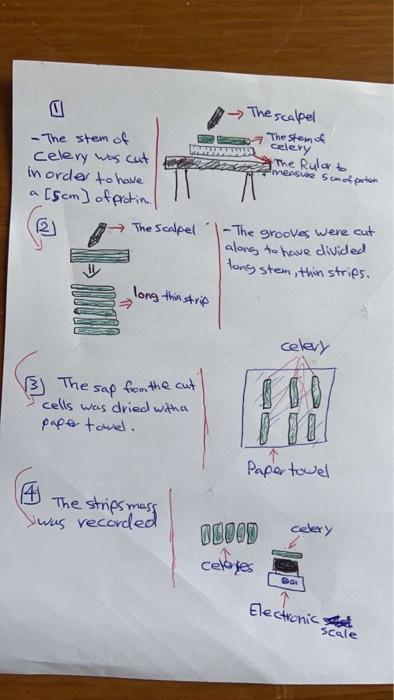 1
- The stem of
celery was cut
in order to have
a [5cm] of protin.
The scalpel
The stem of
celery
The Rular to
measure 5cm of portion
2
The scalpel
long thin strip
- The grooves were cut
along to have divided
long stem, thin strips.
3 The sap from the cut
cells was dried with a
paper towel.
celery
Paper towel
4
The strips mass
was recorded
celeries
celery
Electronic
scale